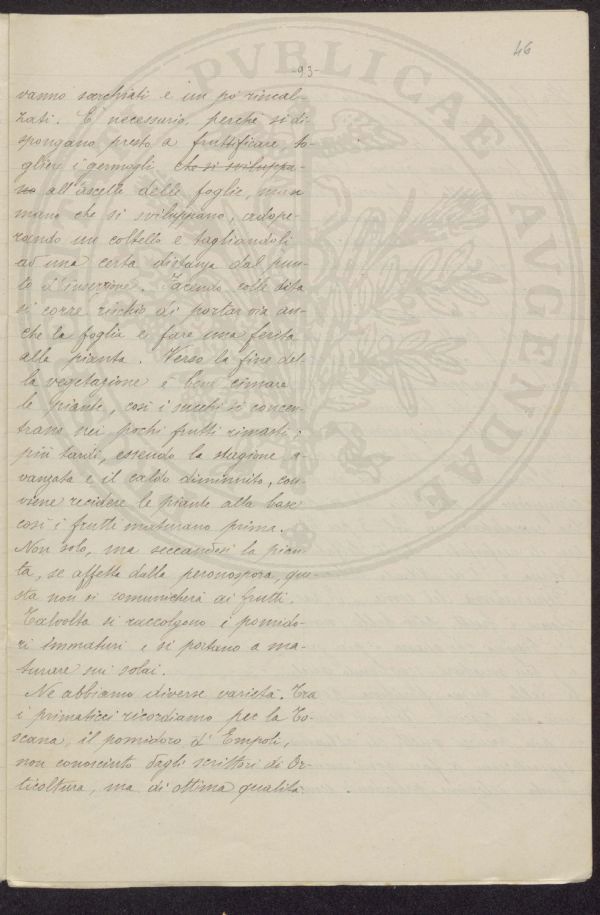 46
-93-
vanno sarchiati e un pò rincal-
zati. È necessario, perchè si di-
spongano presto a fruttificare, to-
gliere i germogli che si sviluppa-
no all'ascella delle foglie, man
mano che si sviluppano, adope-
rando un coltello e tagliandoli
ad una certa distanza dal pun-
to d'inserzione. Facendo colle dita
si corre rischio di portar via an-
che la foglia e fare una ferita
alla pianta. Verso la fine del-
la vegetazione è bene cimare
le piante, così i succhi si concen-
trano nei pochi frutti rimasti;
più tardi, essendo la stagione a-
vanzata e il caldo diminuito, con-
viene recidere le piante alla base
così i frutti maturano prima.
Non solo, ma seccandosi la pian-
ta, se affetta dalla peronospora, que-
sta non si comunicherà ai frutti.
Talvolta si raccolgono i pomido-
ri immaturi e si portano a ma-
turare sui solai.
Ne abbiamo diverse varietà. Tra
i primaticci ricordiamo per la To-
scana, il pomidoro d'Empoli,
non conosciuto dagli scrittori di Or-
ticoltura, ma di ottima qualità
PVBLICAE AVGENDAE